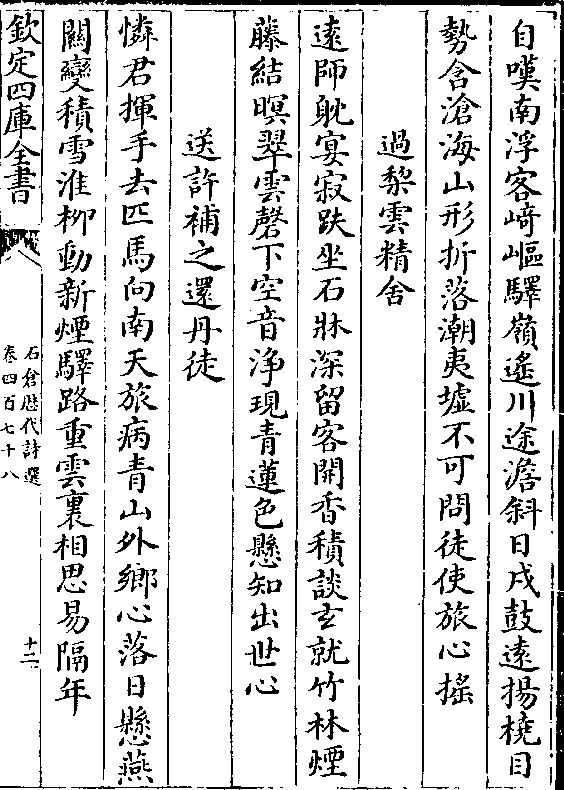 自嘆南浮客﨑嶇驛嶺遙川途澹斜日戍鼓遠揚橈目
勢含滄海山形折落潮夷墟不可問徒使旅心搖
過棃雲精舍
遠師躭宴寂趺坐石牀深留客開香積談𤣥就竹林煙
藤結暝翠雲磬下空音浄現青蓮色懸知出世心
送許補之還丹徒
憐君揮手去匹馬向南天旅病青山外鄉心落日懸燕
關變積雪淮柳動新煙驛路重雲裏相思易隔年
欽定四庫全書
石倉歴代詩選
卷四百七十八
十二